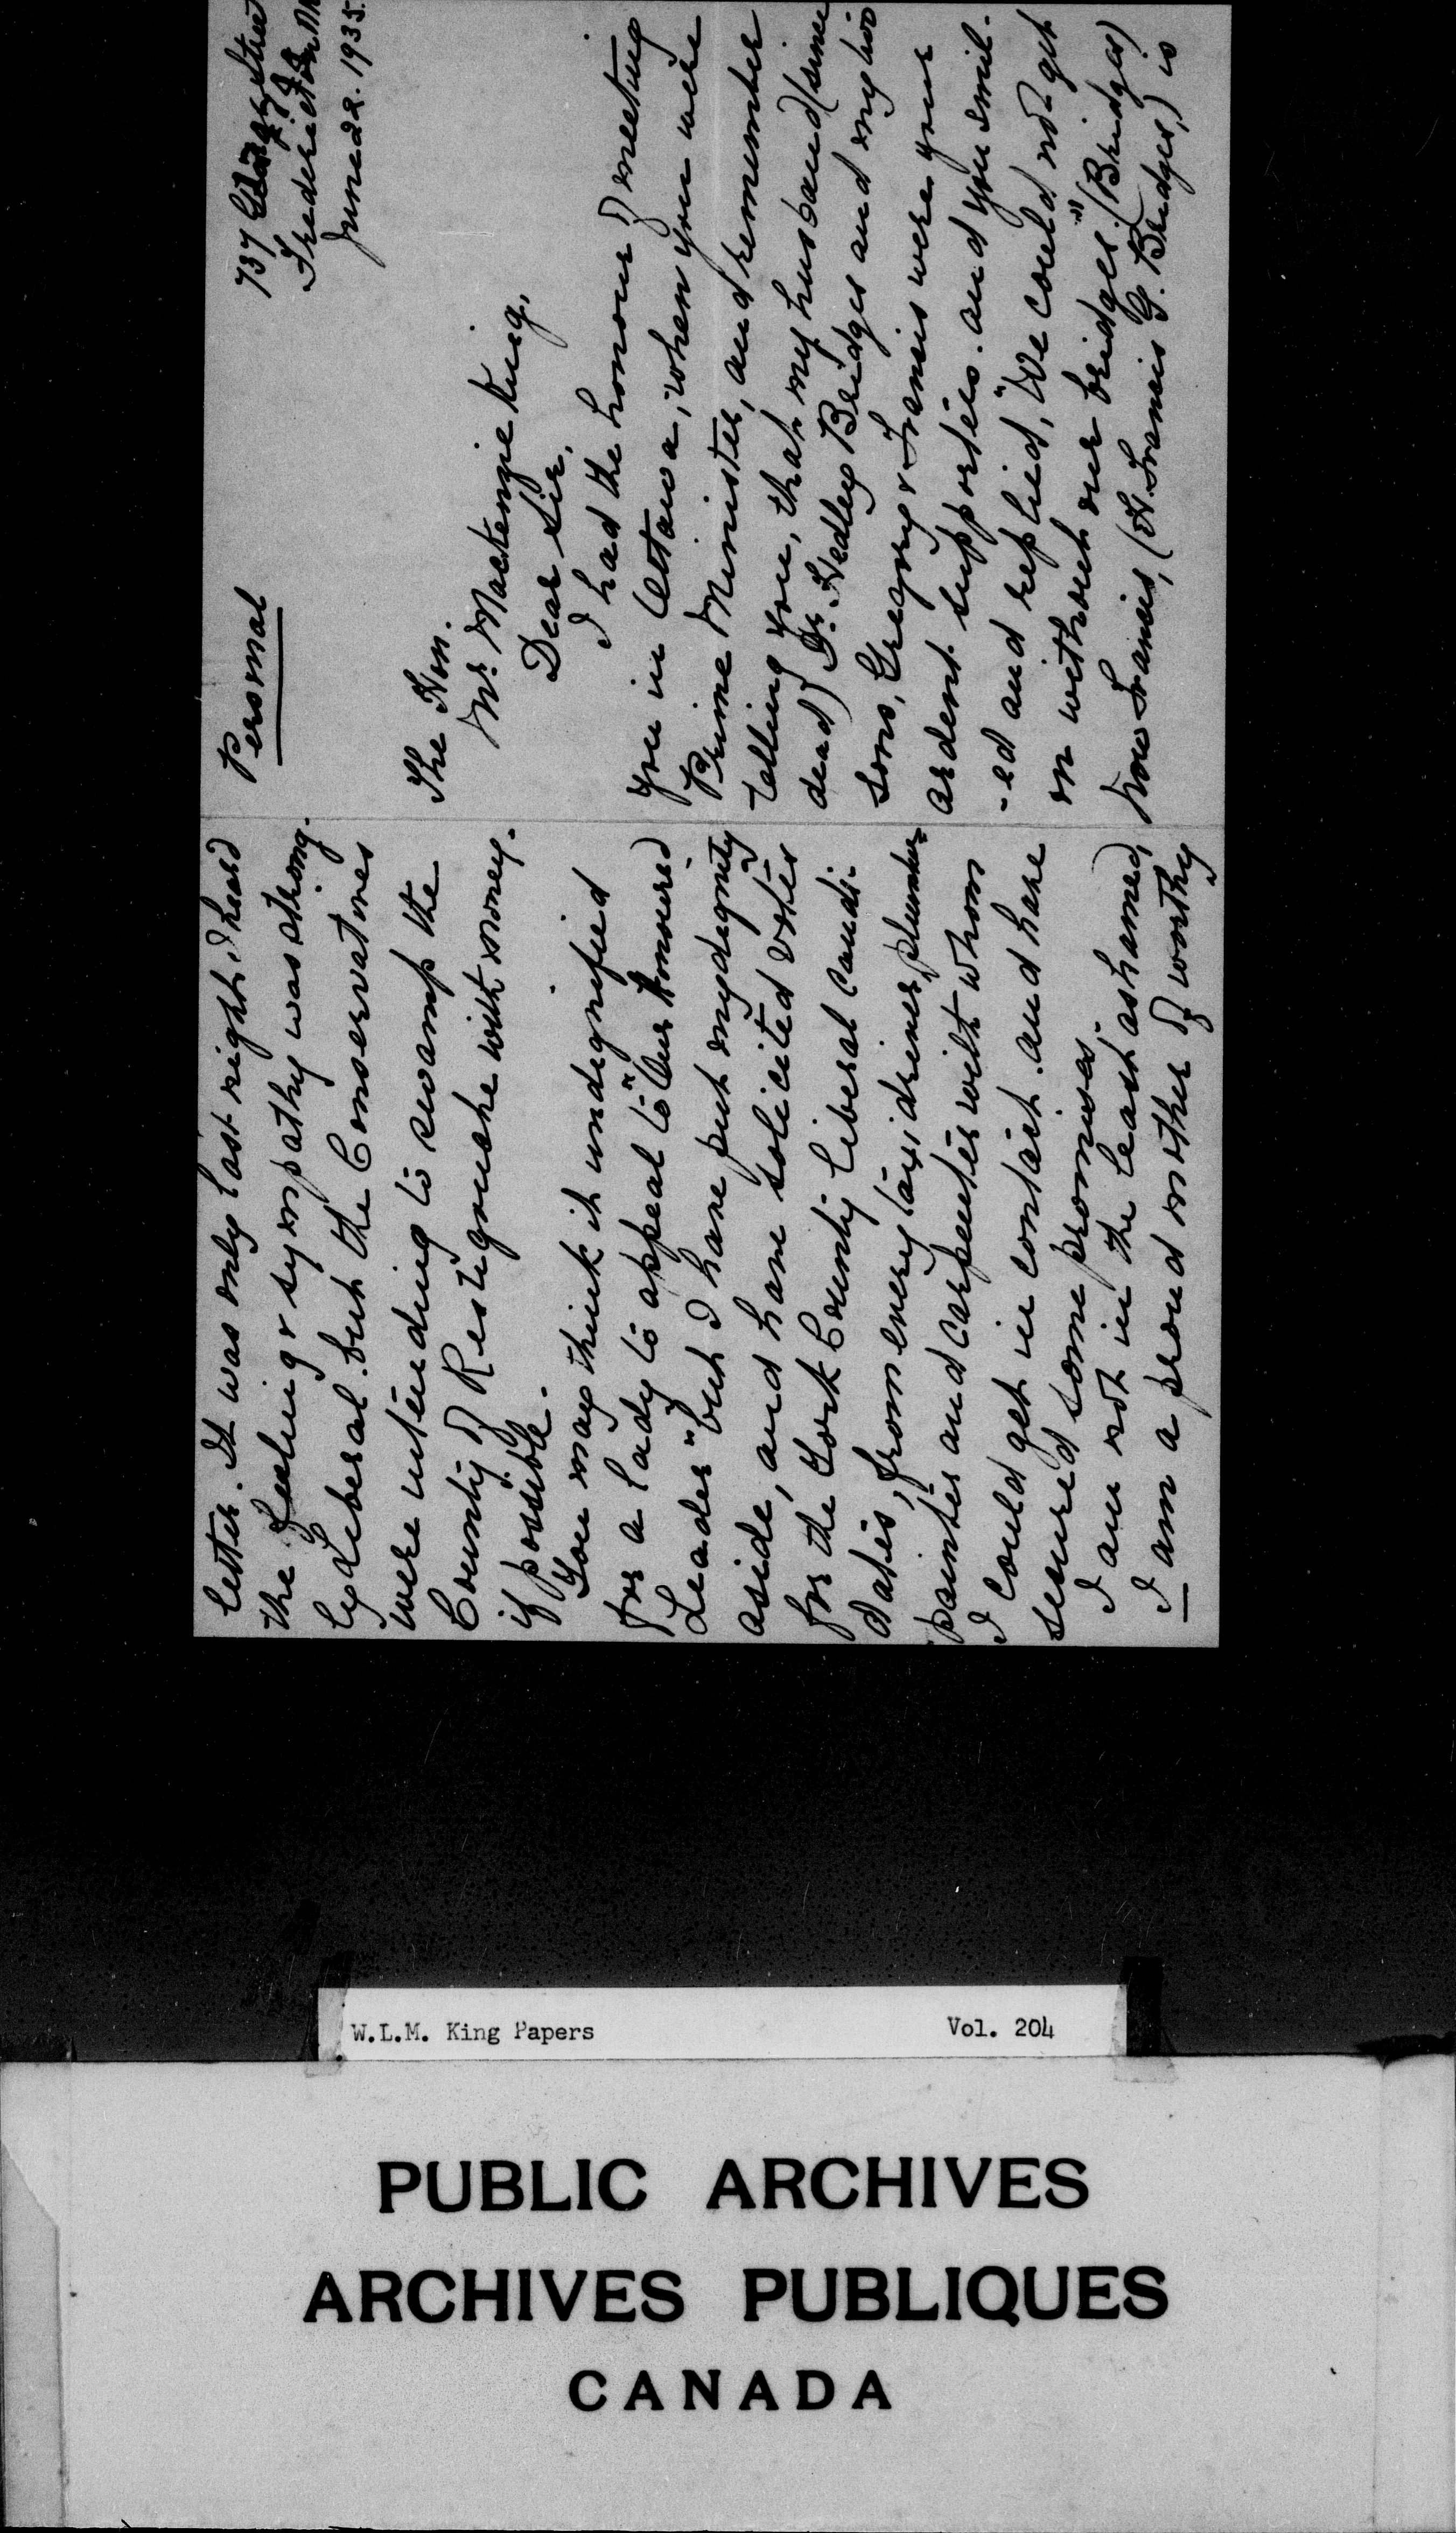 Personal
737 George Street
Fredericton NB
June 22. 1935.
The Hon.
Mr. Mackenzie King,
Dear Sir,
I had the honour of meeting
you in Ottawa, when you were
Prime Minister, and remember
telling you, that my husband (since
dead) Dr. Hedley Bridges and my two
sons, Gregory & Francis were your
ardent supporters. and you smil-
-ed and replied, "We could not get
on without our bridges." (Bridges)
Now Francis, (H. Francis G. Bridges,) is
letter. It was only last night, I heard
the feeling & sympathy was strong-
ly Liberal. but the Conservatives
were intending to swamp the
County of Restigouche with money.
if possible.
You may think it undignified
for a lady to appeal to "Our Honoured
Leader" but I have put my dignity
aside, and have solicited votes
for the York County Liberal Candi-
dates, from every taxi driver, plumber
painter and carpenter with whom
I could get in contact. and have
secured some promises.
I am not in the least ashamed,
I am a proud mother of worthy
W.L.M. King Papers
Vol. 204
PUBLIC ARCHIVES
ARCHIVES PUBLIQUES
CANADA